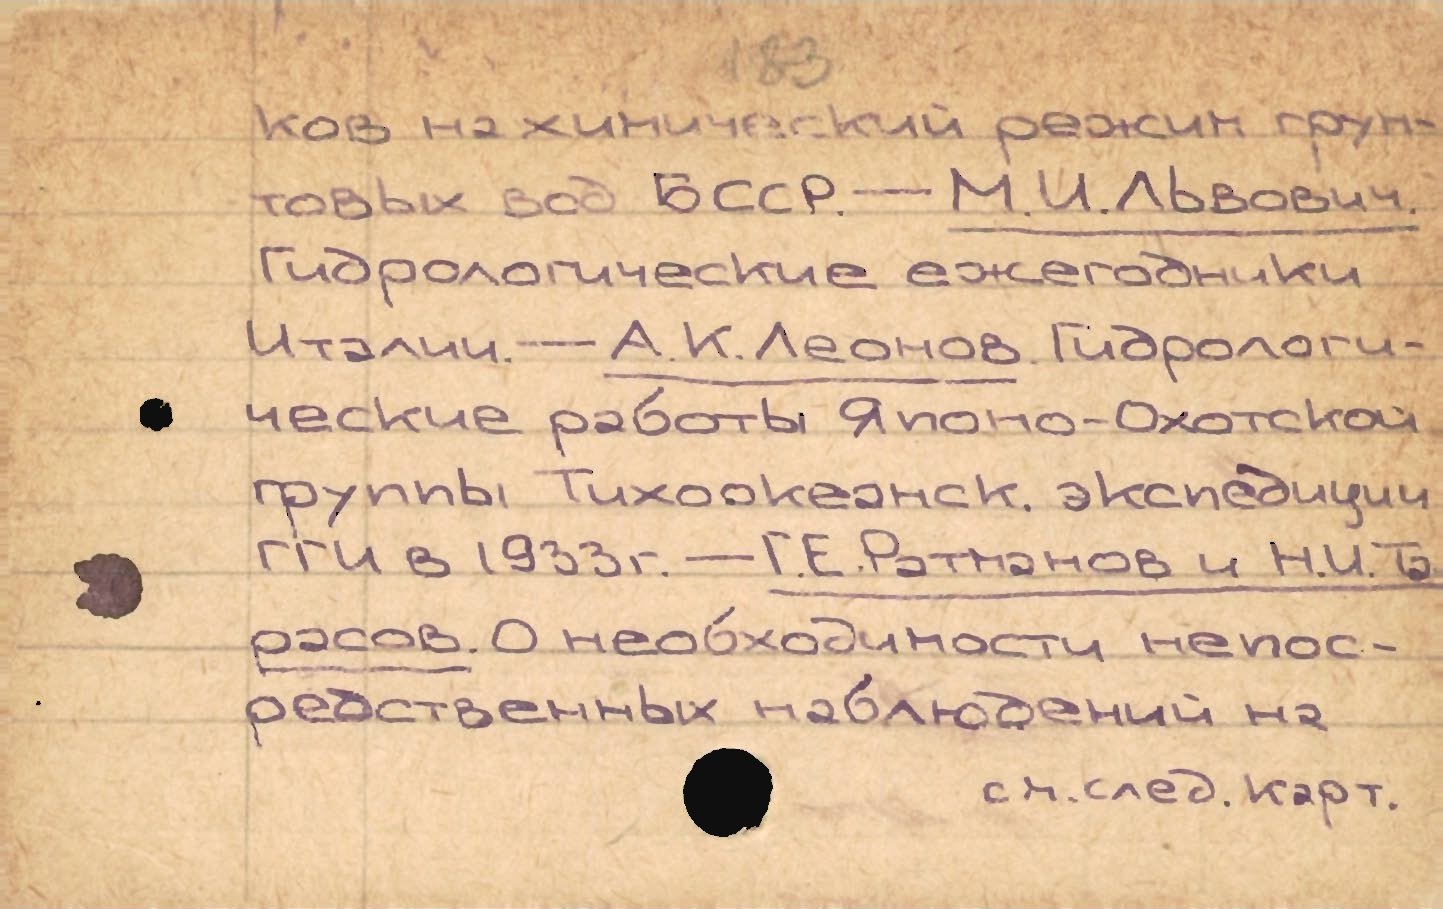 183
ков на химический режим грун-
товых вод БССР. — М.И.Львович.
Гидрологические ежегодники
Италии. — А.К.Леонов. Гидрологи-
ческие работы Японо-Охотской
группы Тихоокеанск. экспедиции
ГГИ в 1933г. — Г.Е.Ратманов и Н.И.Та
расов. О необходимости непос-
редственных наблюдений на
см. след. карт.